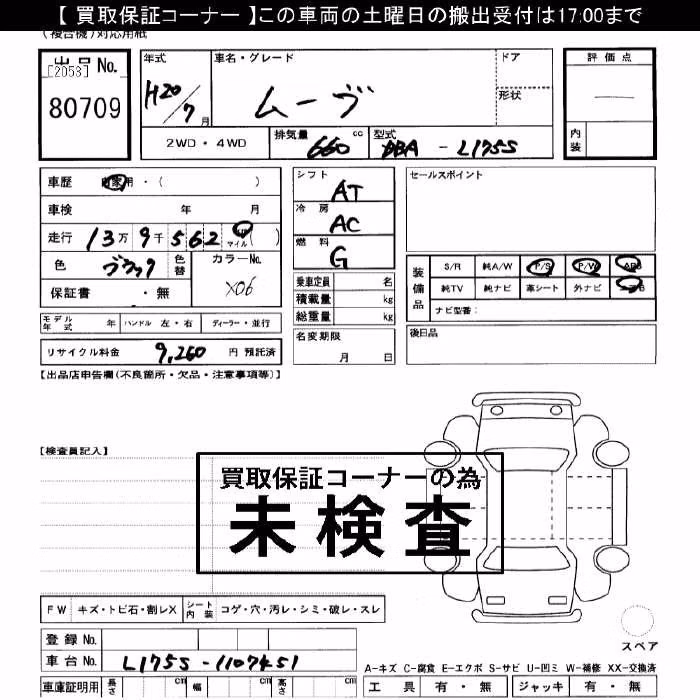 【 買取保証コーナー 】この車両の土曜日の搬出受付は17:00まで
(複合機)対応用紙
出品 No.
[2053]
80709
年式
H20/7月
車名・グレード
ムーヴ
ドア
形状
評価点
内装
2WD・4WD
排気量 660 cc
型式 DBA - L175S
車歴 自家用・( )
車検 年 月
走行 13万9千562 マイル( )
色 ブラック 色替
カラーNo. X06
保証書 ・無
シフト AT
冷房 AC
燃料 G
乗車定員 名
積載量 kg
総重量 kg
セールスポイント
装備品
S/R 純A/W P/S P/W ABS
純TV 純ナビ 革シート 外ナビ
ナビ型番:
モデル年式 年 ハンドル 左・右 ディーラー・並行
名変期限 月 日
後日品
リサイクル料金 9,260 円 預託済
【出品店申告欄(不良箇所・欠品・注意事項等)】
【検査員記入】
買取保証コーナーの為
未検査
FW キズ・トビ石・割レX シート内装 コゲ・穴・汚レ・シミ・破レ・スレ
登録 No.
車台 No. L175S-1107451
スペア
A-キズ C-腐食 E-エクボ S-サビ U-凹ミ W-補修 XX-交換済
車庫証明用 長さ cm 幅 cm 高さ cm
工具 有・無 ジャッキ 有・無